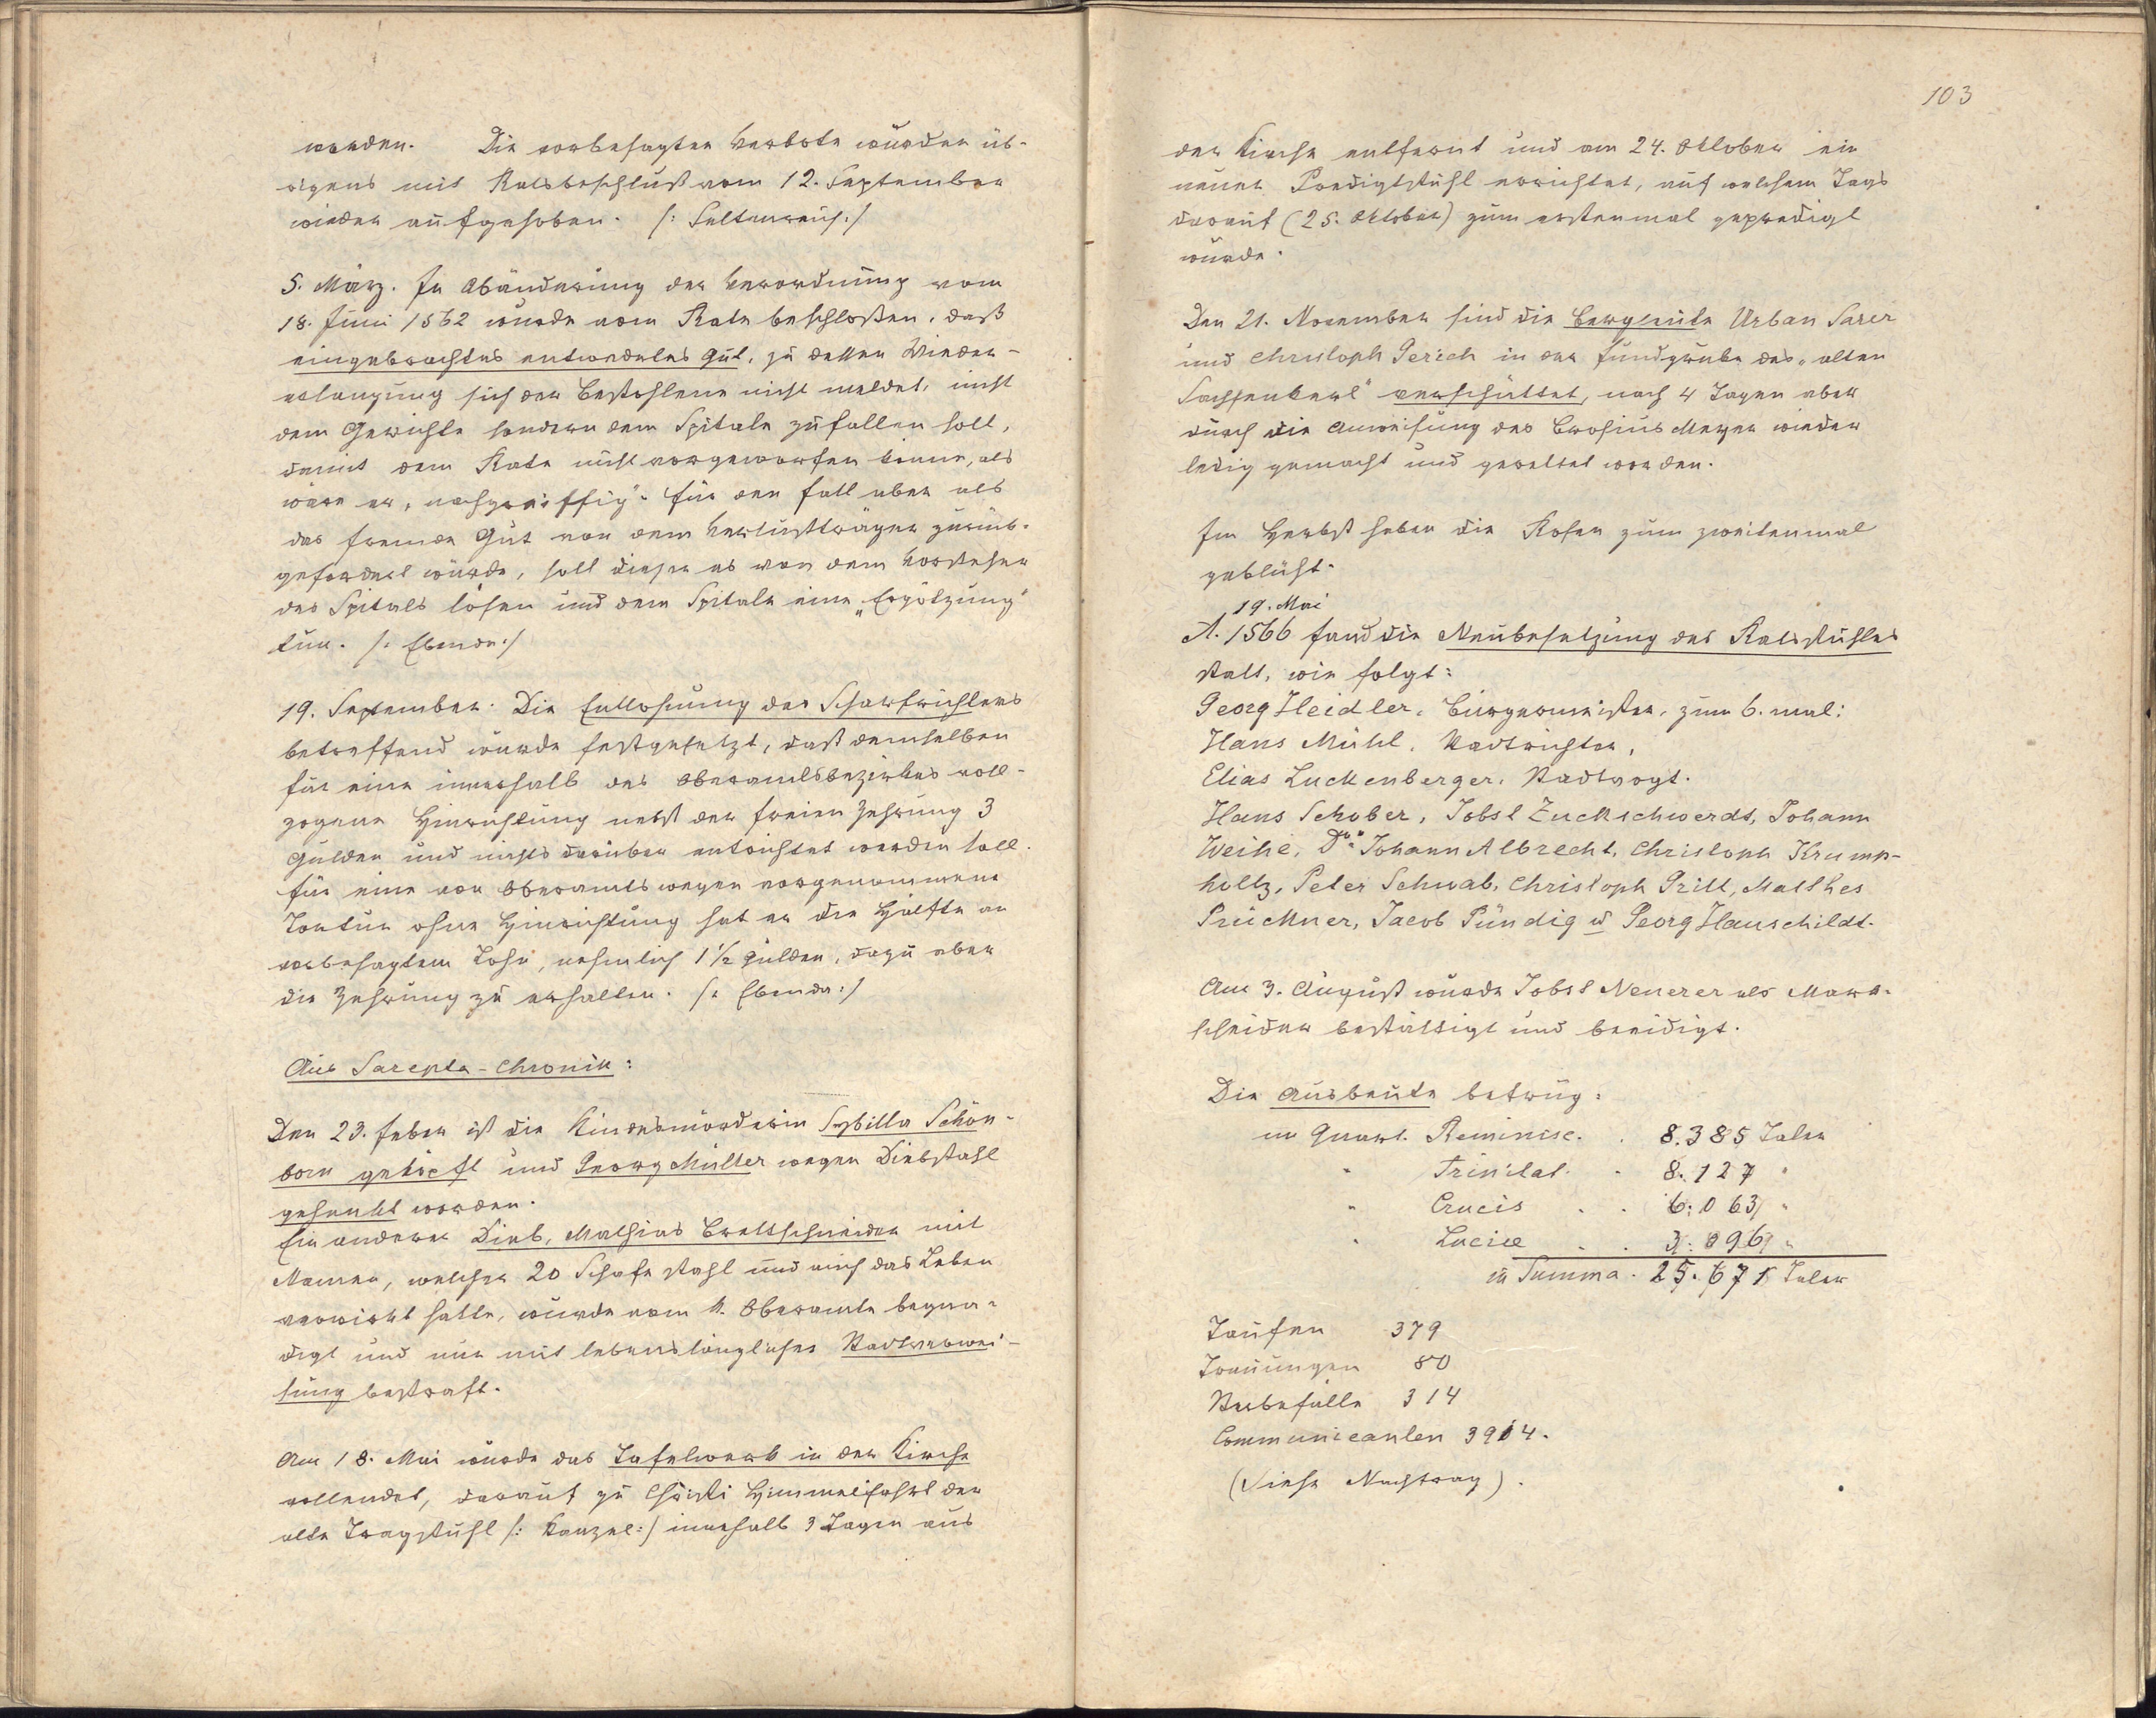 werden. Die vorbesagten Verbote wurden üb-
rigens mit Ratsbeschluß vom 12. September
wieder aufgehoben. /: Seltenreich :/
5. März. In Abänderung der Verordnung vom
18. Juni 1562 wurde vom Rate beschloßen, daß
eingebrachtes entwendetes Gut, zu dessen Wieder-
erlangung sich der Bestohlene nicht meldet, nicht
dem Gerichte sondern dem Spitale zufallen soll,
damit dem Rate nicht vorgeworfen könne, als
wäre er, nachgreiffig". Für den Fall aber als
das fremde Gut von dem Verlustträger zurück-
gefordert würde, soll dieser es von dem Vorsteher
des Spitals lösen und dem Spitale eine „Ergötzung"
tun. /: Ebenda :/
19. September. Die Entlohnung des Scharfrichters
betreffend wurde festgesetzt, daß demselben
für eine innerhalb des Oberamtsbezirkes voll-
zogene Hinrichtung nebst der freien Zehrung 3
Gulden und nichts darüber entrichtet werden soll.
Für eine von Oberamts wegen vorgenommene
Tortur ohne Hinrichtung hat er die Hälfte an
vorbesagtem Lohn, nehmlich 1½ Gulden, dazu aber
die Zehrung zu erhalten. /: Ebenda :/
Aus Sarepta-Chronik:
Den 23. Feber ist die Kindesmörderin Sybilla Schön-
born geköpft und Georg Müller wegen Diebstahl
gehenkt worden.
Ein anderer Dieb, Mathias Brettschneider mit
Namen, welcher 20 Schafe stahl und auch das Leben
verwirkt hatte, wurde vom k. Oberamte begna-
digt und nur mit lebenslänglicher Stadtverwei-
sung bestraft.
Am 18. Mai wurde das Tafelwerk in der Kirche
vollendet, darauf zu Christi Himmelfahrt der
alte Tragstuhl /: Kanzel :/ innerhalb 3 Tagen aus
103
der Kirche entfernt und am 24. Oktober ein
neuer Predigtstuhl errichtet, auf welchem Tags
darauf (25. Oktober) zum erstenmal gepredigt
wurde.
Den 21. November sind die Bergleute Urban Sarer
und Christoph Gerich in der Fundgrube des „alten
Sachsenberl" verschüttet, nach 4 Tagen aber
durch die Anweisung des Brosius Meyer wieder
ledig gemacht und gerettet worden.
Im Herbst haben die Rosen zum zweitenmal
geblüht.
19. Mai
A. 1566 fand die Neubesetzung des Ratsstuhles
statt, wie folgt:
Georg Heidler, Bürgermeister, zum 6. mal;
Hans Mühl, Stadtrichter,
Elias Luckenberger, Stadtvogt.
Hans Schober, Jobst Zuckschwerdt, Johann
Weihe, Dr. Johann Albrecht, Christoph Krump-
holtz, Peter Schwab, Christoph Prill, Matthes
Prückner, Jacob Pündig u Georg Hauschildt.
Am 3. August wurde Jobst Neuerer als Mark-
scheider bestättigt und beeidigt.
Die Ausbeute betrug:
im Quart. Reminisc. . 8.385 Taler
" Trinitat. . 8.127 "
" Crucis . . 6.063 "
" Luciæ . . 3.096 "
in Summa . 25.671 Taler
Taufen 379
Trauungen 80
Sterbefälle 314
Communicanten 3914.
(Siehe Nachtrag).